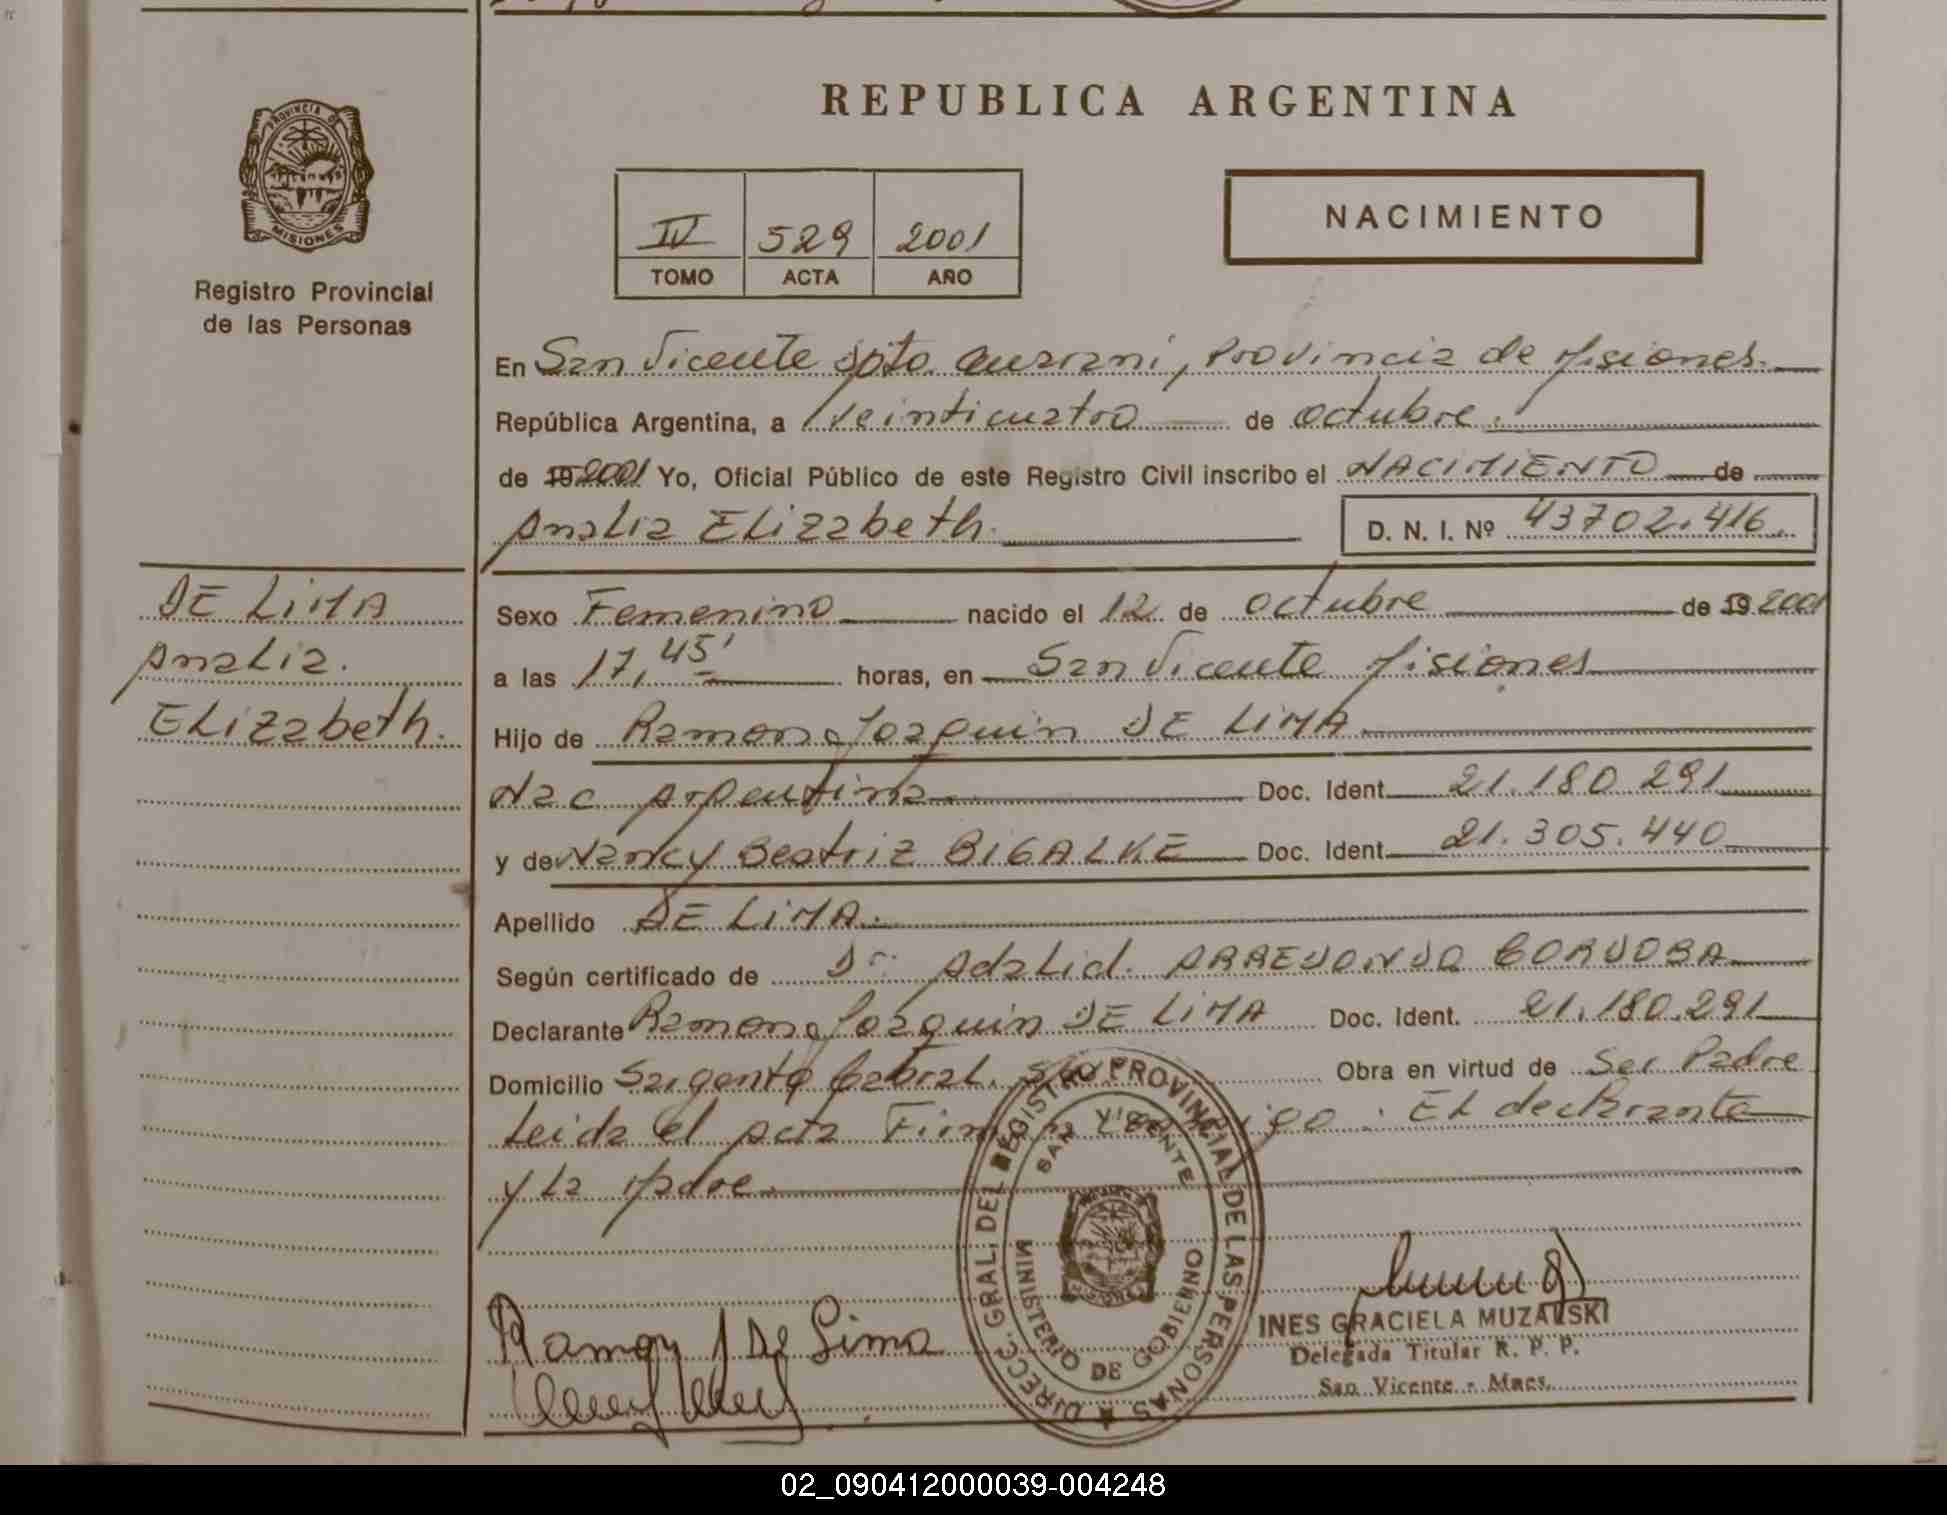 REPUBLICA ARGENTINA
PROVINCIA DE
MISIONES
Registro Provincial
de las Personas
IV 529 2001
TOMO ACTA AÑO
NACIMIENTO
En San Vicente Dpto. Guarani, Provincia de Misiones.
República Argentina, a Veinticuatro de octubre.
de 19 2001 Yo, Oficial Público de este Registro Civil inscribo el NACIMIENTO de
Analia Elizabeth.
D. N. I. Nº 43702.416.
DE LIMA
Analia.
Elizabeth.
Sexo Femenino nacido el 12 de octubre de 19 2001
a las 17,45' horas, en San Vicente Misiones
Hijo de Ramon Joaquin DE LIMA
Nac Argentina Doc. Ident. 21.180.291
y de Nancy Beatriz BIGALKE Doc. Ident. 21.305.440
Apellido DE LIMA.
Según certificado de Dr. Adalid. ARREDONDO CORDOBA
Declarante Ramon Joaquin DE LIMA Doc. Ident. 21.180.291
Domicilio Sargento Cabral. Obra en virtud de Ser Padre
Leida el acta El declarante
y la Madre.
DIRECC. GRAL. DEL REGISTRO PROVINCIAL DE LAS PERSONAS
SAN VICENTE
MINISTERIO DE GOBIERNO
Ramon J De Lima
INES GRACIELA MUZALSKI
Delegada Titular R. P. P.
San Vicente - Mnes.
02_090412000039-004248